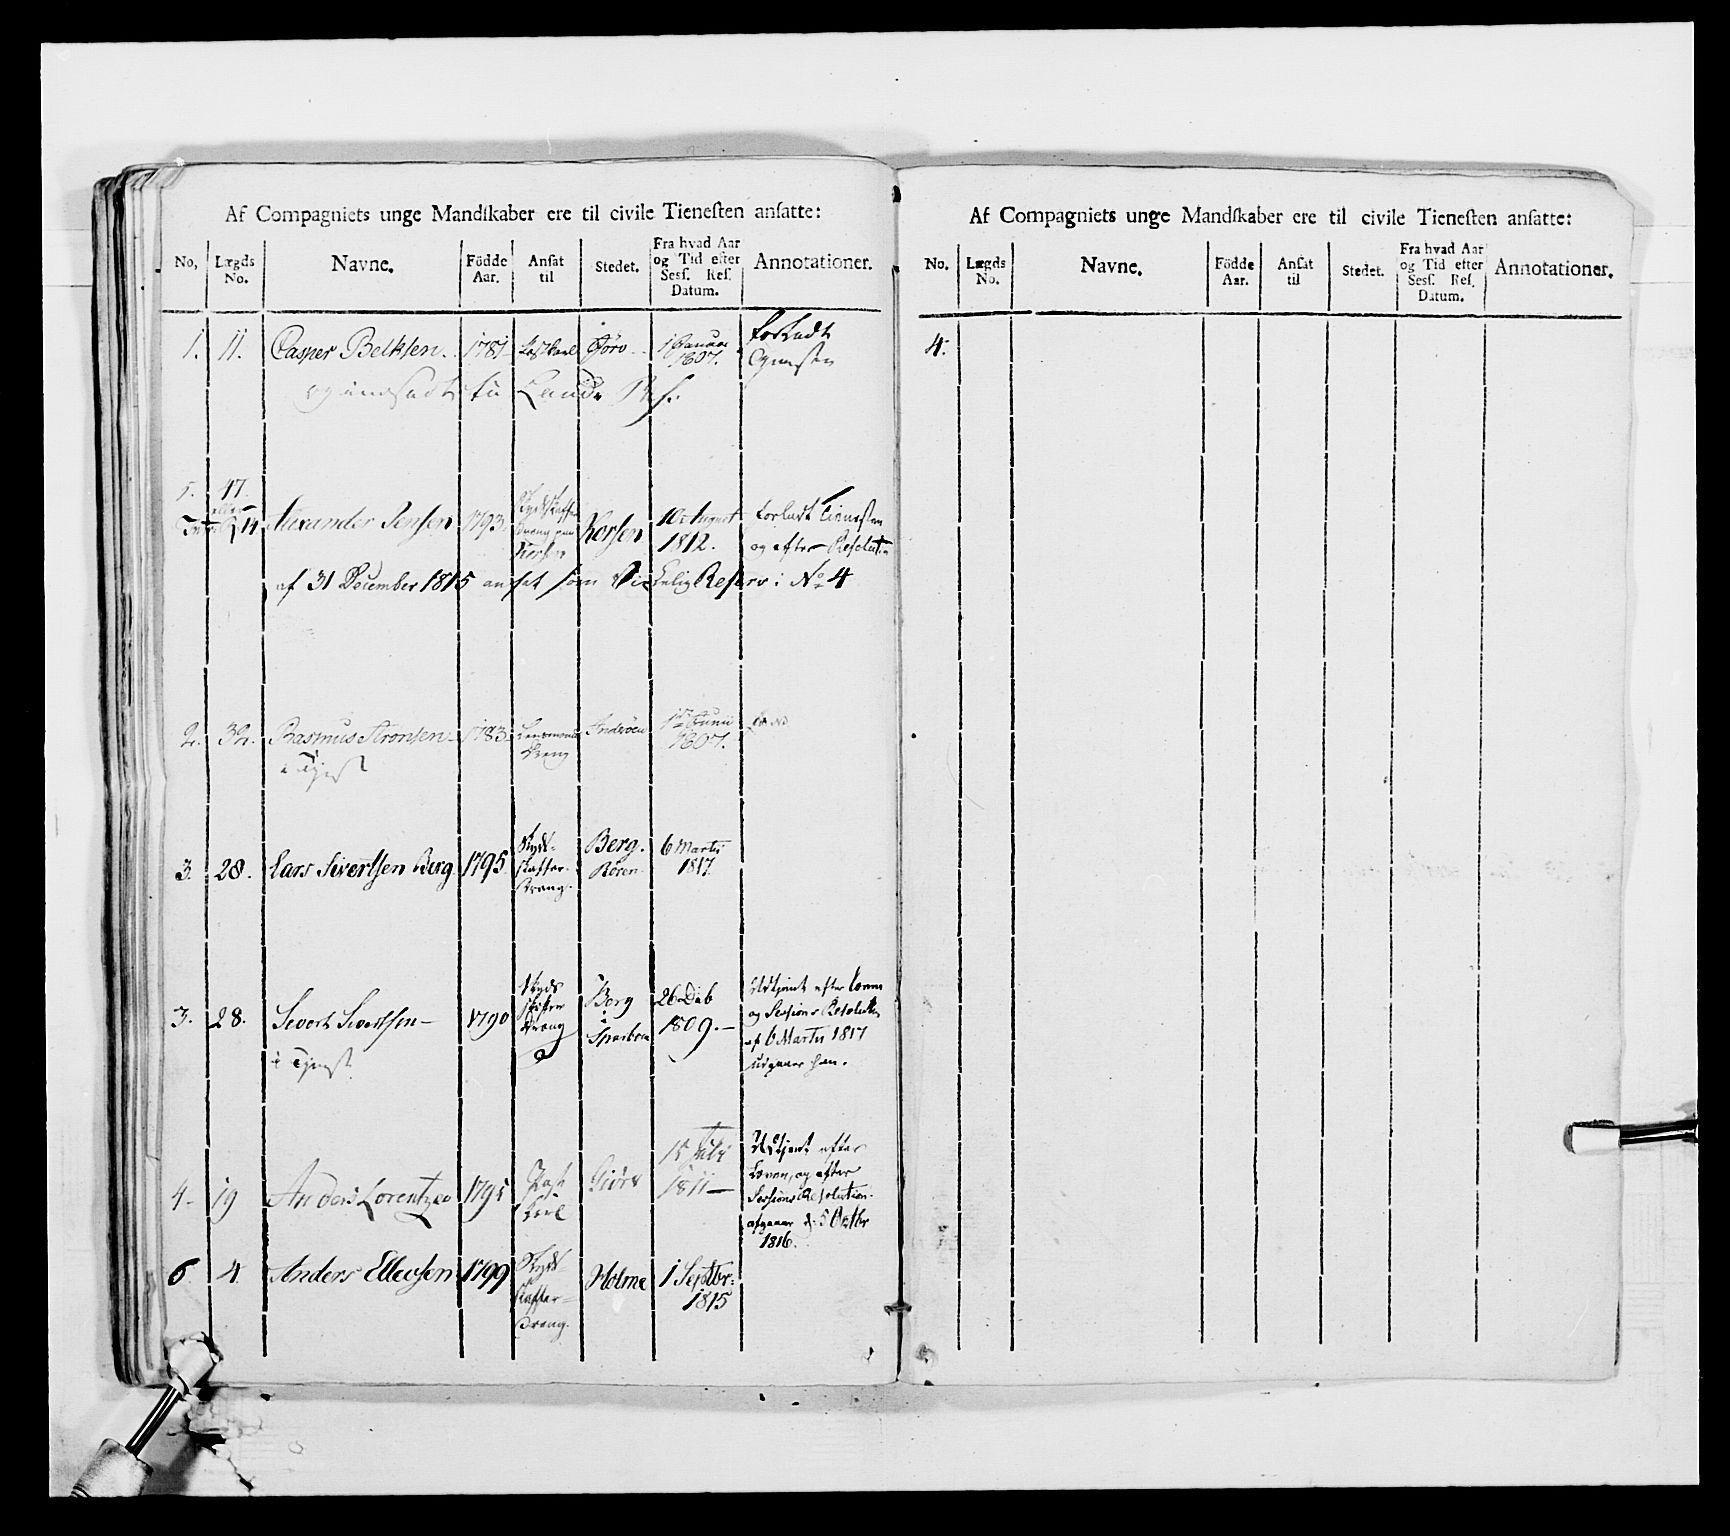 Af Compagniets unge Mandſkaber ere til civile Tieneſten anſatte:
No, Lægds No. Navne. Födde Aar. Anſat til Stedet. Fra hvad Aar og Tid efter Sesſ. Reſ. Datum. Annotationer.
1. 11. Casper Belksen. 1781 Postkarl 1 Januar 1807. forladt
Tjenesten
5. 17.
Alexander Jensen 1793. Korsen 10 August 1812. forladt Tienesten
og efter Resolution
af 31 December 1815 ansat som Virkelig Reserv i No 4
2. 32. Rasmus Aronsen 1783. Lensmands Dreng Inderöen 1 Junii 1807.
i Tjenst
3. 28. Lars Sivertsen Berg 1795. Skyds-
skaffer-
dreng. Berg. Rören 6 Martii 1817.
3. 28. Sivert Sivertsen 1790 Skyds
skaffer
Dreng Berg i Sparboe 26 Deb 1809. Udtjent efter Loven
og Sessions Resolution
af 6 Martii 1817
udgaaer han.
i Tjenst
4 19 Anders Lorentzen 1795 Post
Karl 15 July 1811 Udtjent efter
Loven, og efter
Sessions Resolution
afgaaer d. 5 Octbr
1816.
6 4. Anders Ellevsen 1799 Skyds
skaffer-
dreng. Holme 1 Septbr: 1815
Af Compagniets unge Mandſkaber ere til civile Tieneſten anſatte:
No. Lægds No. Navne. Födde Aar. Anſat til Stedet. Fra hvad Aar og Tid efter Sesſ. Reſ. Datum. Annotationer.
4.